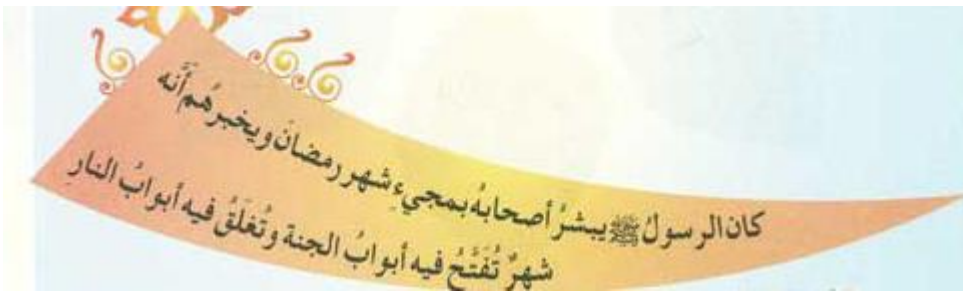 كان الرسولُ ﷺ يبشرُ أصحابهُ بمجيءِ شهر رمضانَ ويخبرُهم أَنَّه
شهرٌ تُفَتَّحُ فيه أبوابُ الجنة وتُغلَقُ فيه أبوابُ النارِ